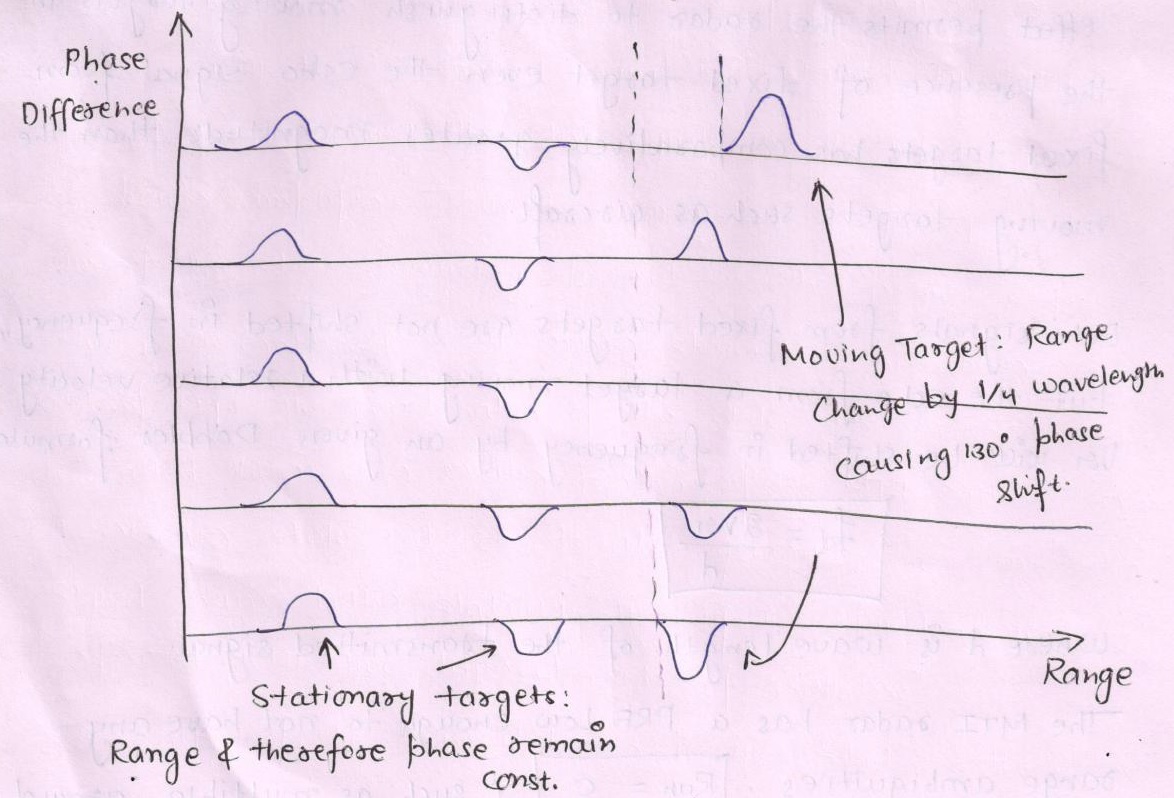 Phase
Difference
Moving Target: Range
Change by 1/4 wavelength
causing 130° phase
shift.
Range
Stationary targets:
Range & therefore phase remain
const.